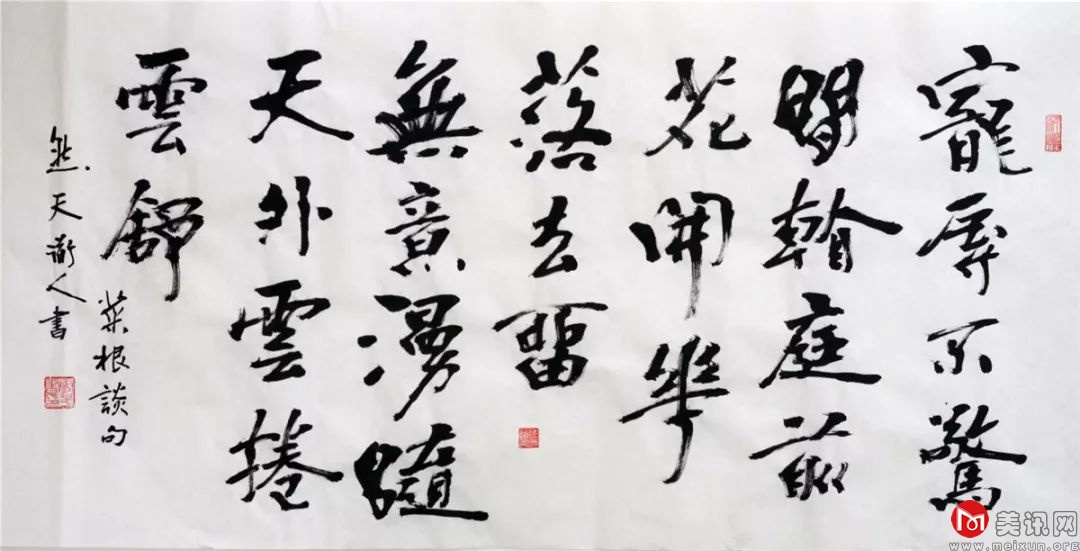 寵辱不驚
閒看庭前
花開華
落去留
無意漫隨
天外雲捲
雲舒
菜根談句
天人書
美讯网
www.meixun.org